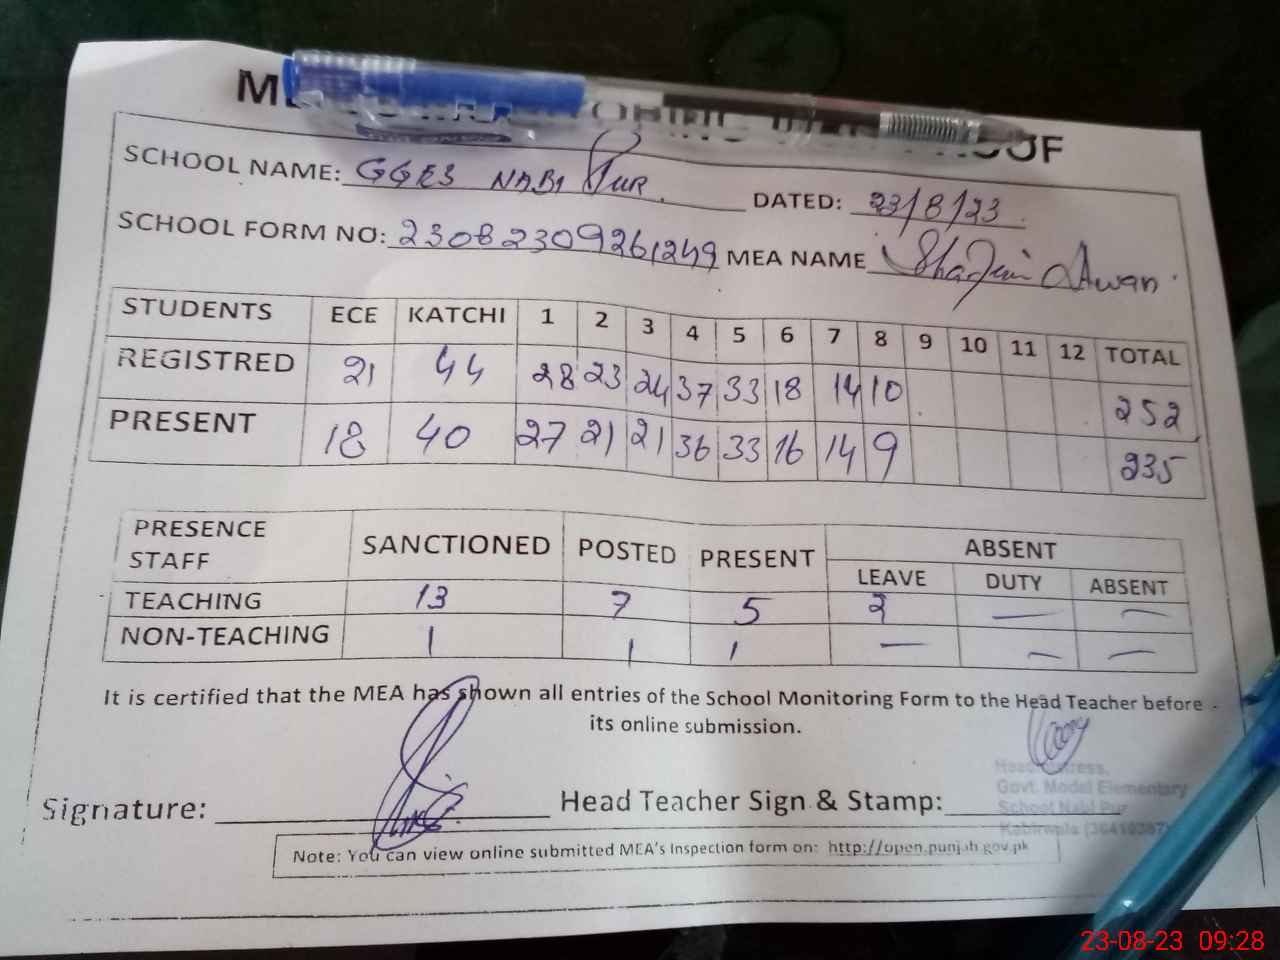 PROOF
SCHOOL NAME: GGES NABI PUR. DATED: 23/8/23
SCHOOL FORM NO: 23082309261249 MEA NAME Awan
STUDENTS ECE KATCHI 1 2 3 4 5 6 7 8 9 10 11 12 TOTAL
REGISTRED 21 44 28 23 24 37 33 18 14 10 252
PRESENT 18 40 27 21 21 36 33 16 14 9 235
PRESENCE STAFF SANCTIONED POSTED PRESENT ABSENT
LEAVE DUTY ABSENT
TEACHING 13 7 5 2 — —
NON-TEACHING 1 1 1 — — —
It is certified that the MEA has shown all entries of the School Monitoring Form to the Head Teacher before
its online submission.
Signature: Head Teacher Sign & Stamp:
Govt. Model Elementary
School Nabi Pur
Kabirwala
Note: You can view online submitted MEA's Inspection form on: http://open.punjab.gov.pk
23-08-23 09:28